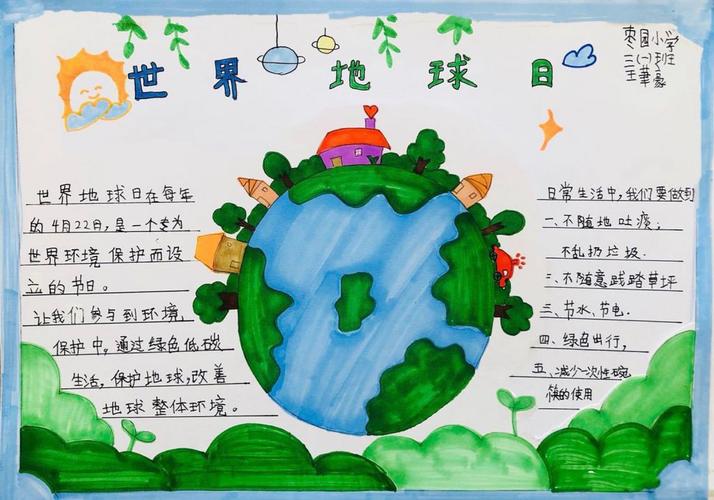 世界地球日
枣园小学
二(一)班
王華豪
世界地球日在每年
的4月22日,是一个专为
世界环境保护而设
立的节日。
让我们参与到环境,
保护中,通过绿色低碳
生活,保护地球,改善
地球整体环境。
日常生活中,我们要做到
一、不随地吐痰;
不乱扔垃圾.
二、不随意践踏草坪
三、节水、节电.
四、绿色出行,
五、减少一次性碗
筷的使用